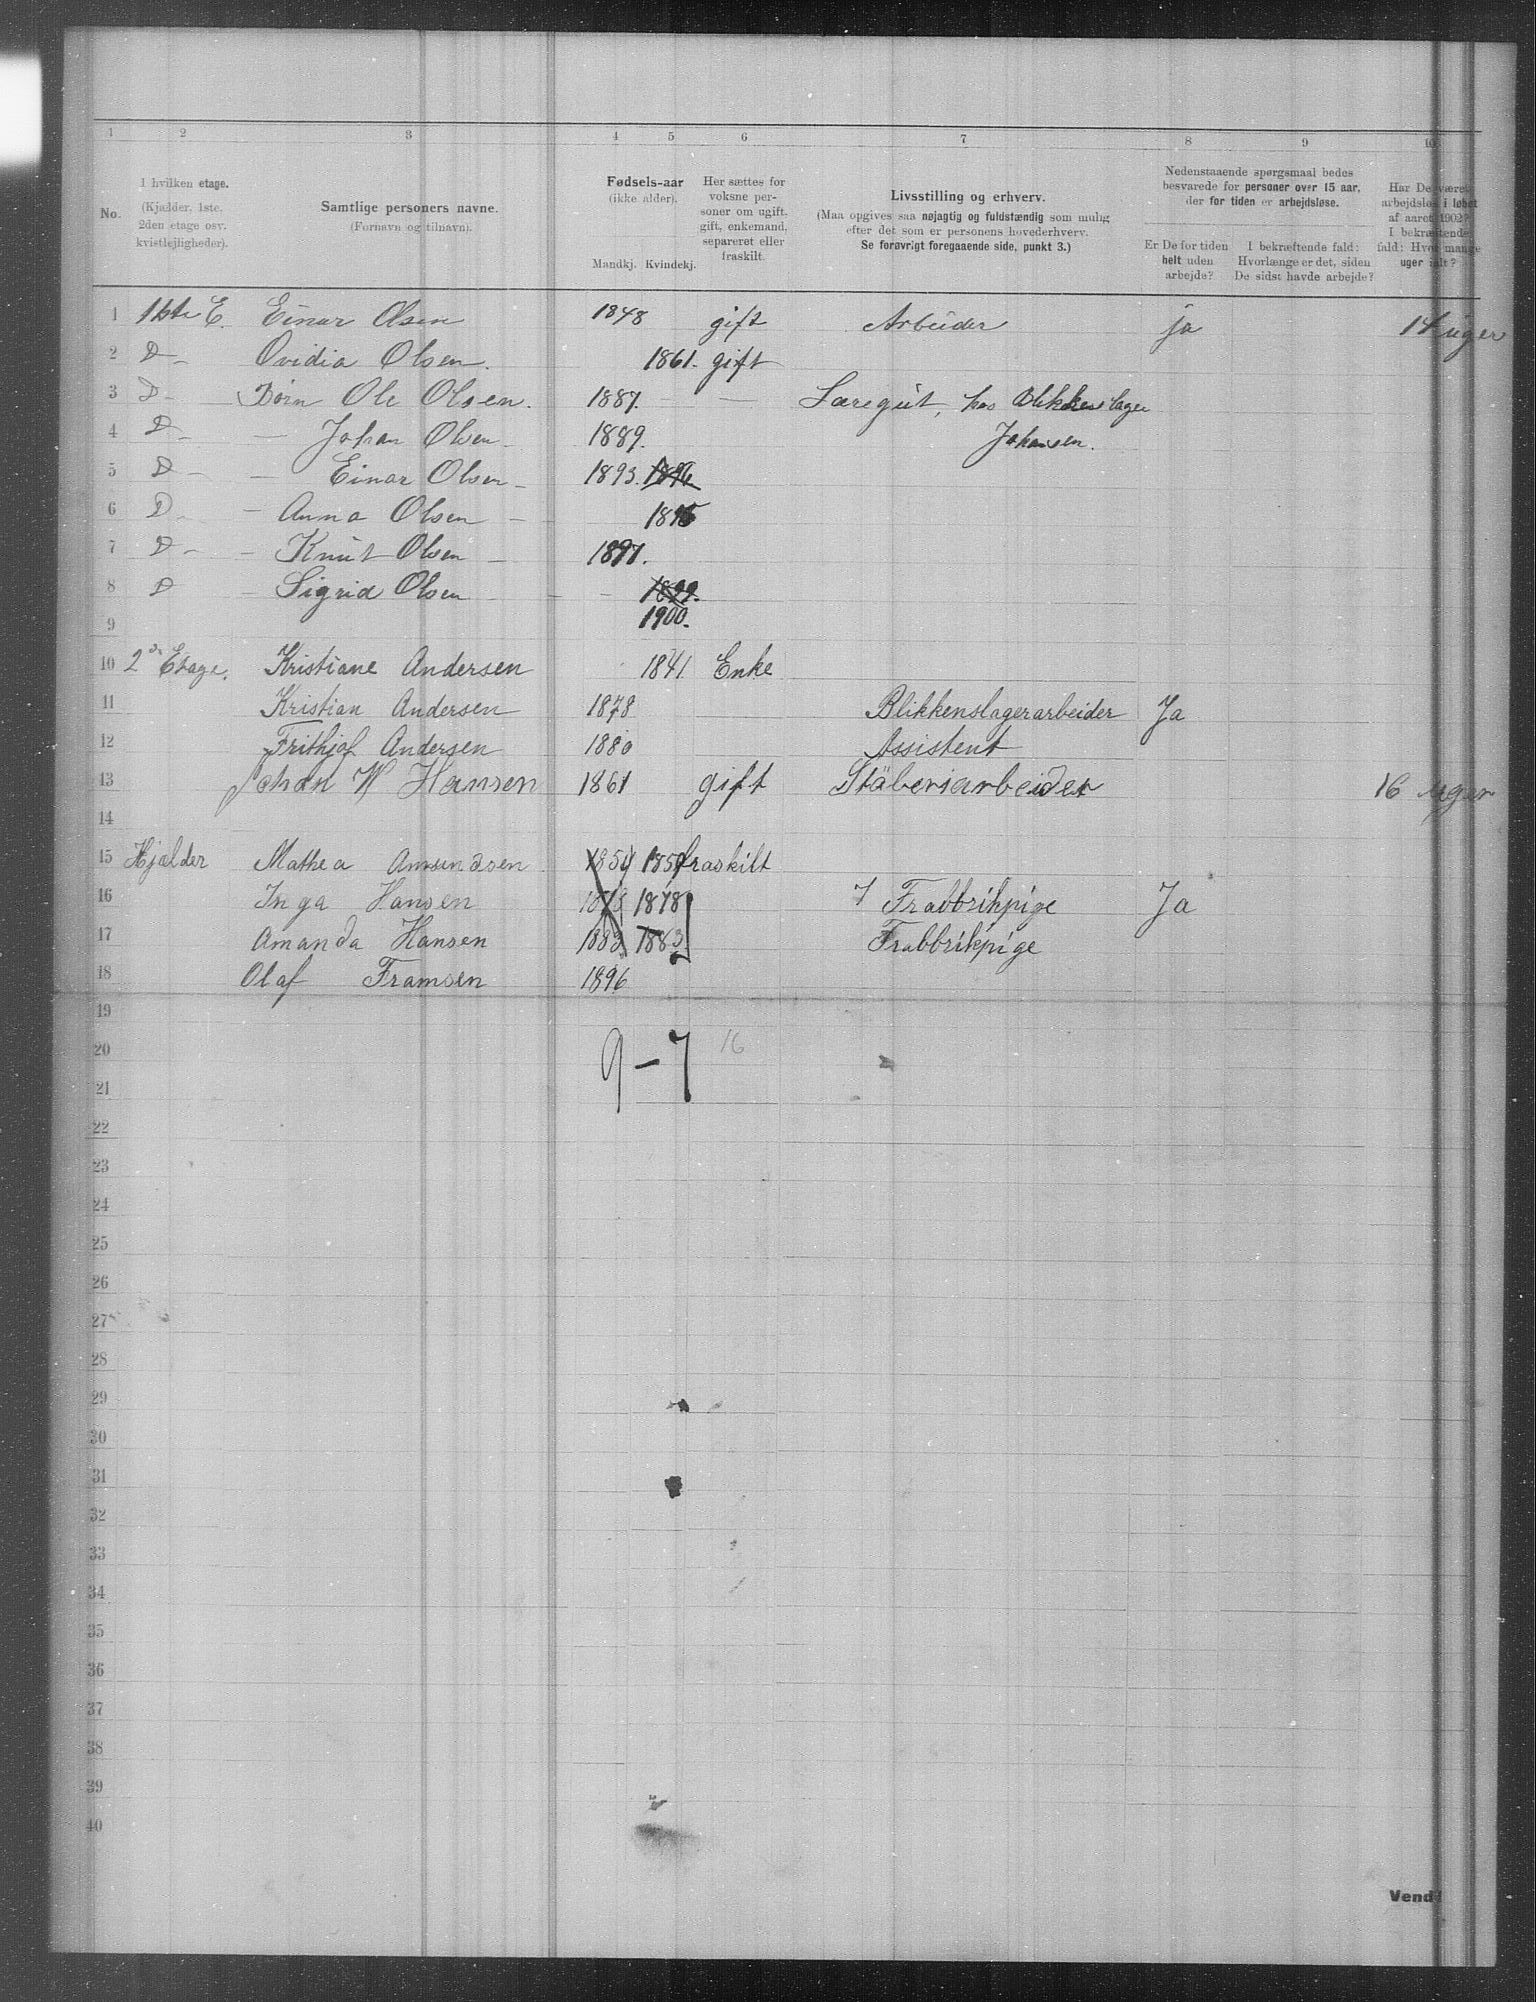 1 2 3 4 5 6 7 8 9 10
No.
I hvilken etage.
(Kjælder, 1ste.
2den etage osv.
kvistlejligheder).
Samtlige personers navne.
(Fornavn og tilnavn).
Fødsels-aar
(ikke alder).
Mandkj. Kvindekj.
Her sættes for
voksne per-
soner om ugift,
gift, enkemand,
separeret eller
fraskilt.
Livsstilling og erhverv.
(Maa opgives saa nøjagtig og fuldstændig som mulig
efter det som er personens hovederhverv.
Se forøvrigt foregaaende side, punkt 3.)
Nedenstaaende spørgsmaal bedes
besvarede for personer over 15 aar,
der for tiden er arbejdsløse.
Er De for tiden
helt uden
arbejde?
I bekræftende fald:
Hvorlænge er det, siden
De sidst havde arbejde?
Har De været
arbejdsløs i løbet
af aaret 1902?
I bekræftende
fald: Hvor mange
uger ialt?
1 1ste E. Einar Olsen 1848 gift Arbeider ja 14 uger
2 D- Ovidia Olsen. 1861. gift
3 D- Børn Ole Olsen. 1887. Læregut, hos Blikkenslager
4 D- - Johan Olsen 1889. Johansen.
5 D- - Einar Olsen - 1893. 1896
6 D- - Anna Olsen - 1895
7 D- - Knut Olsen - 1897.
8 D - Sigrid Olsen - 1899.
9 1900.
10 2den Etage. Kristiane Andersen 1841 Enke
11 Kristian Andersen 1878 Blikkenslagerarbeider Ja
12 Frithjof Andersen 1880 Assistent
13 Johan W Hansen 1861 gift Stäberiarbeider 16 uger
14
15 Kjælder Mathea Amundsen 1854 1854 fraskilt
16 Inga Hansen 1878 1878 Frabbrikpige Ja
17 Amanda Hansen 1883 1883 Frabbrikpige
18 Olaf Framsen 1896
19
20 9-7 16
21
22
23
24
25
26
27
28
29
30
31
32
33
34
35
36
37
38
39
40
Vend!